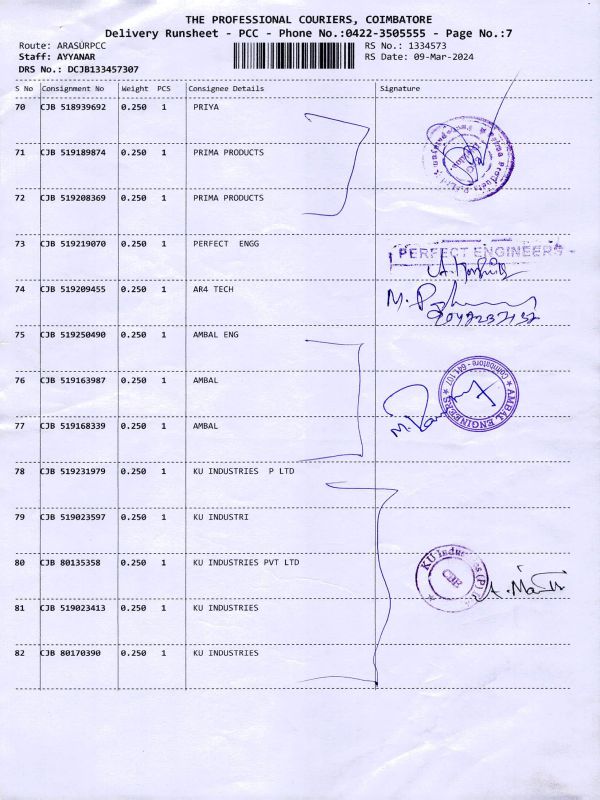 THE PROFESSIONAL COURIERS, COIMBATORE
Delivery Runsheet - PCC - Phone No.:0422-3505555 - Page No.:7
Route: ARASURPCC RS No.: 1334573
Staff: AYYANAR RS Date: 09-Mar-2024
DRS No.: DCJB133457307
S No Consignment No Weight PCS Consignee Details Signature
70 CJB 518939692 0.250 1 PRIYA
71 CJB 519189874 0.250 1 PRIMA PRODUCTS
72 CJB 519208369 0.250 1 PRIMA PRODUCTS
73 CJB 519219070 0.250 1 PERFECT ENGG
PERFECT ENGINEERS
74 CJB 519209455 0.250 1 AR4 TECH
75 CJB 519250490 0.250 1 AMBAL ENG
76 CJB 519163987 0.250 1 AMBAL
AMBAL ENGINEERS
Coimbatore - 641 107
77 CJB 519168339 0.250 1 AMBAL
78 CJB 519231979 0.250 1 KU INDUSTRIES P LTD
79 CJB 519023597 0.250 1 KU INDUSTRI
80 CJB 80135358 0.250 1 KU INDUSTRIES PVT LTD
KU Industries (P)
CBE
81 CJB 519023413 0.250 1 KU INDUSTRIES
82 CJB 80170390 0.250 1 KU INDUSTRIES